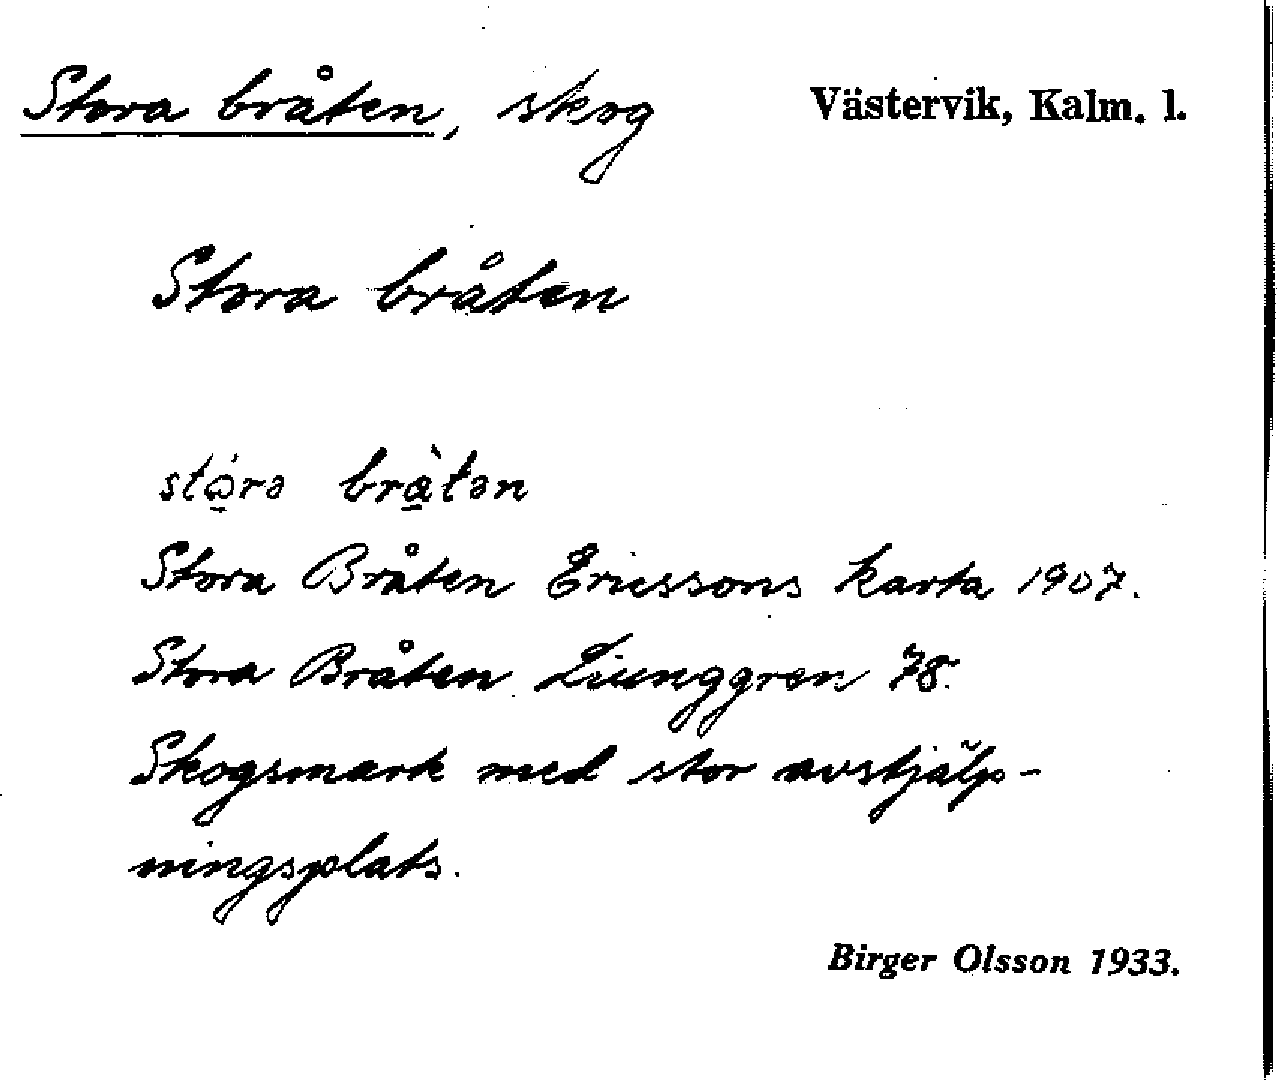 Stora bråten, skog
Västervik, Kalm. l.
Stora bråten
Stora Bråten Ericssons karta 1907.
Stora Bråten Ljunggren 78.
Skogsmark med stor avstjälp-
ningsplats.
Birger Olsson 1933.